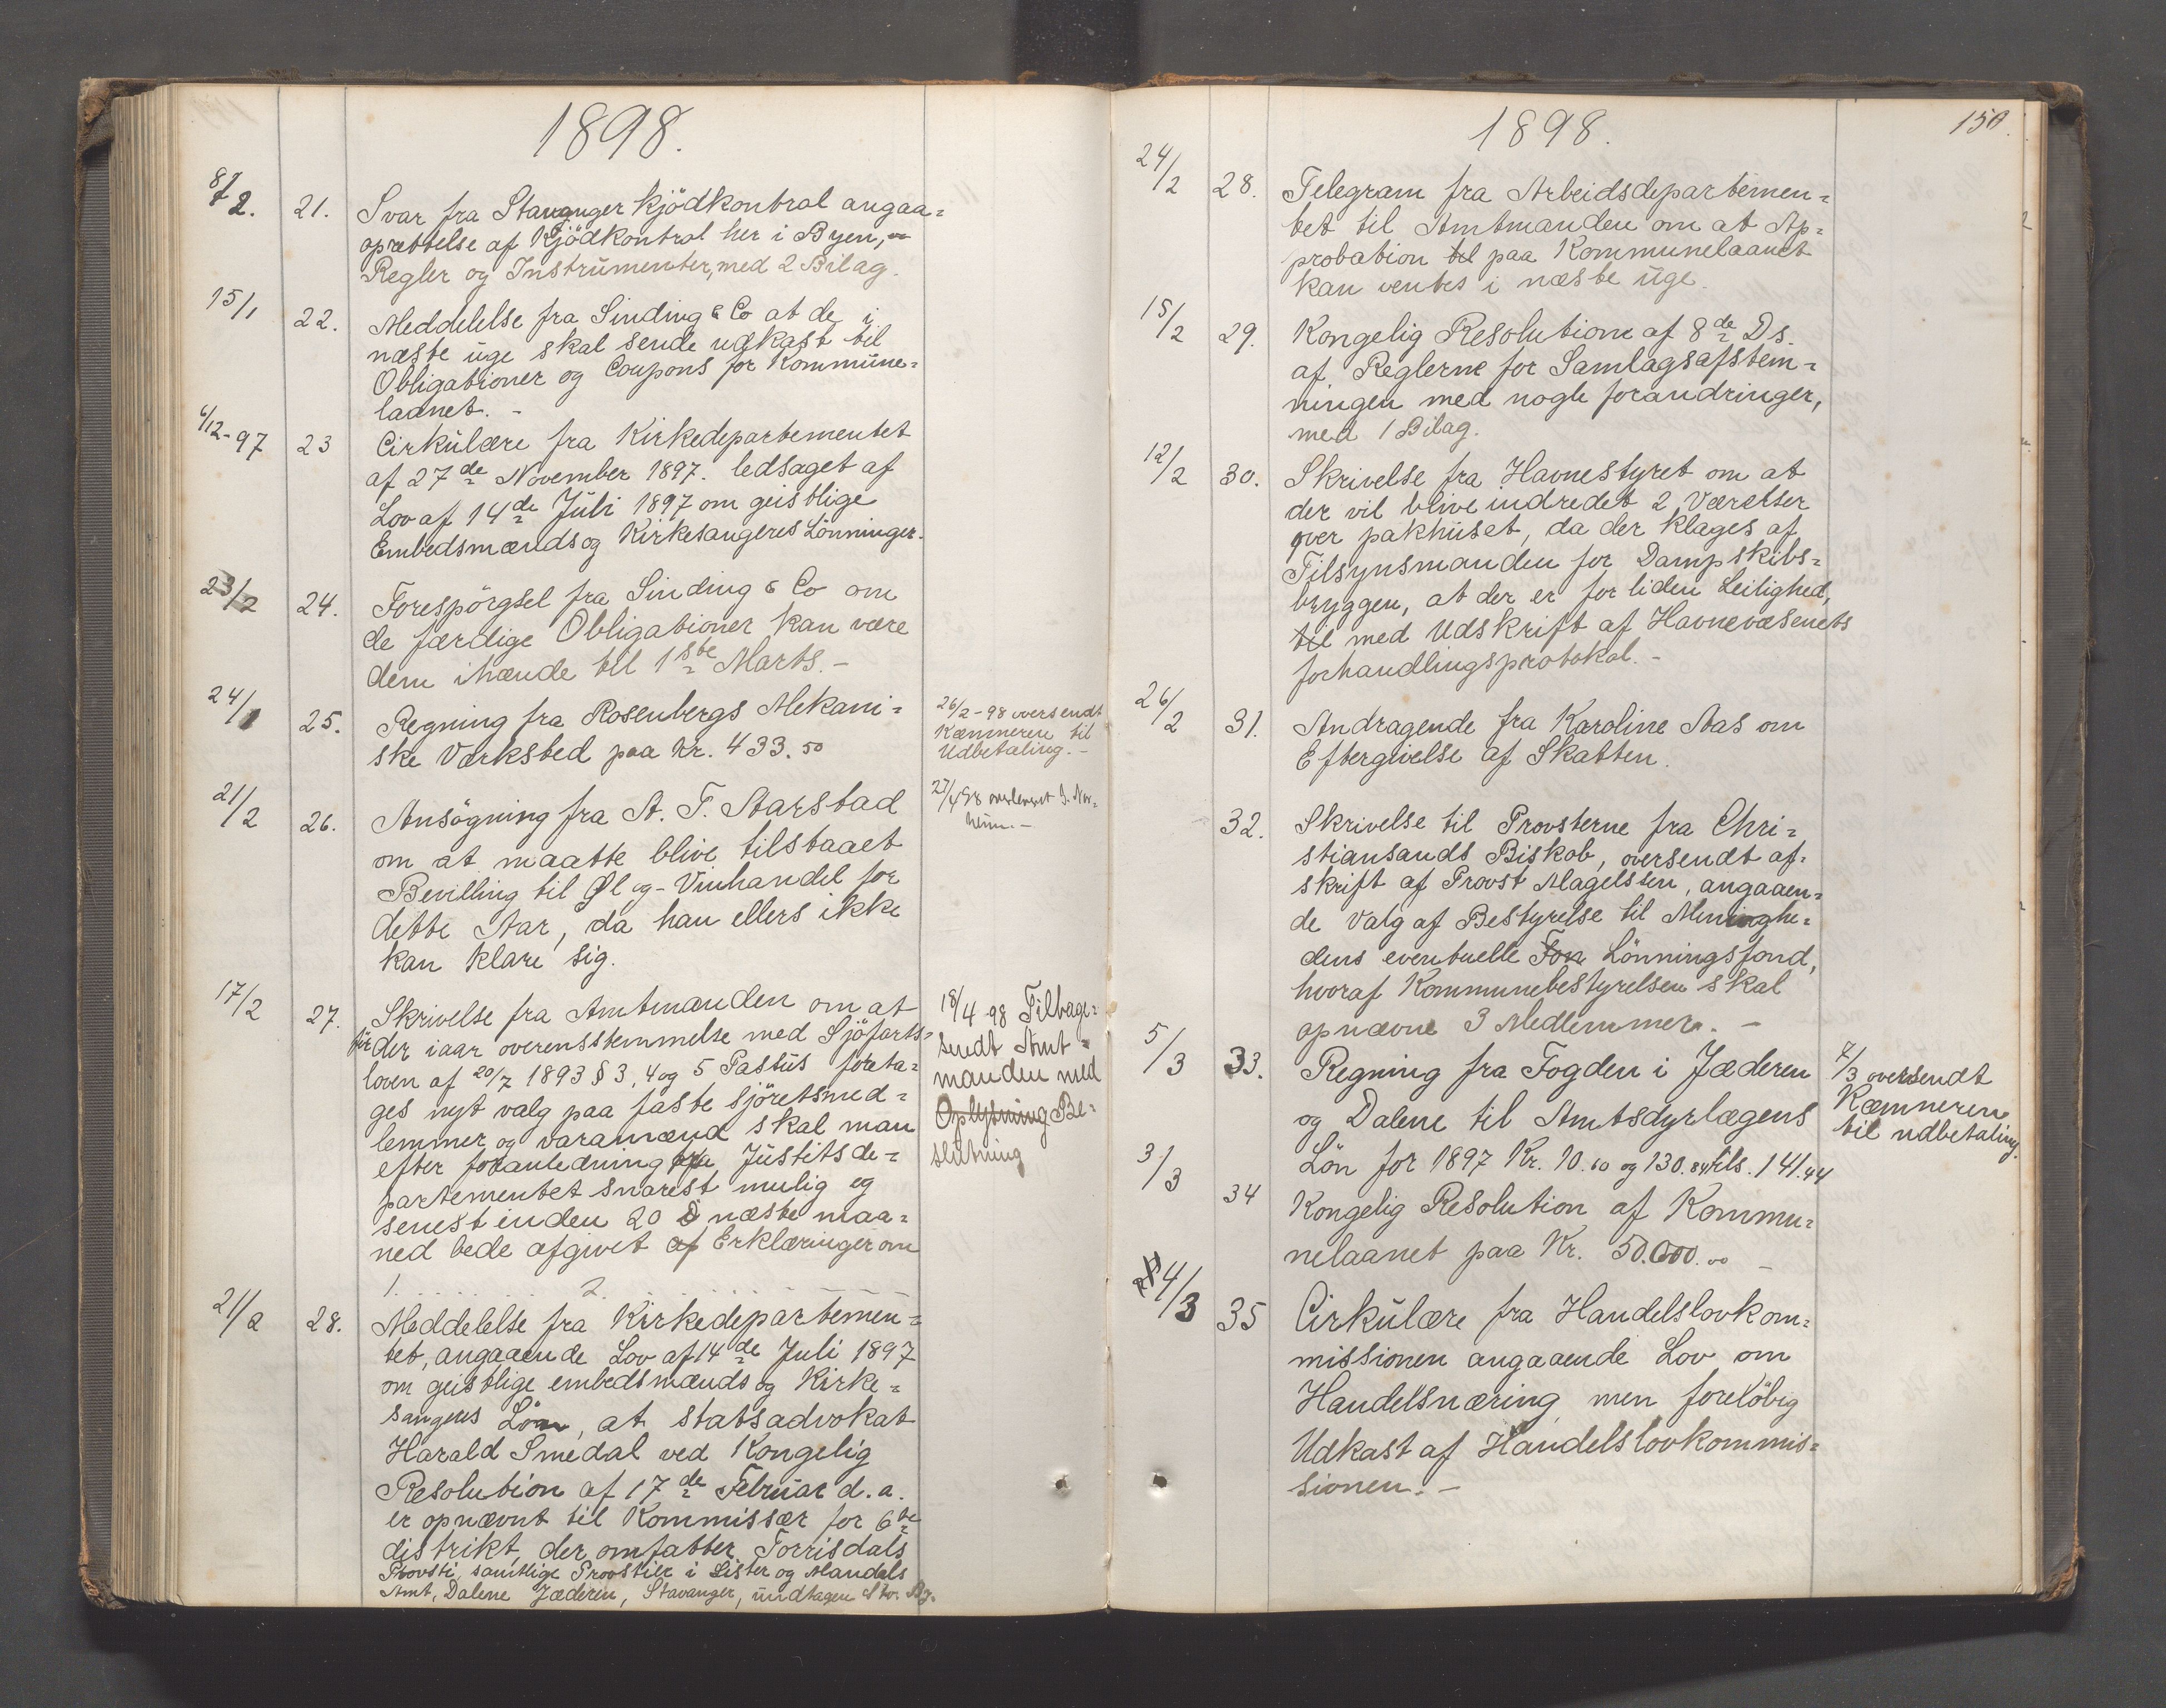 1898.
8/2. 21. Svar fra Stavanger kjödkontrol angaa=
oprettelse af Kjödkontrol her i Byen,
Regler og Instrumenter, med 2 Bilag.
15/1 22. Meddelelse fra Sinding & Co at de i
næste uge skal sende udkast til
Obligationer og Coupons for Kommune=
laanet. -
6/12-97 23 Cirkulære fra Kirkedepartementet
af 27de November 1897. ledsaget af
Lov af 14de Juli 1897 om geistlige
Embedsmænds og Kirkesangeres Lönninger.
23/2 24. Forespörgsel fra Sinding & Co om
de færdige Obligationer kan være
dem ihænde til 1ste Marts. -
24/1 25. Regning fra Rosenbergs Mekani=
ske Værksted paa Kr. 433.50
26/2-98 oversendt
Kæmneren til
Udbetaling. -
21/2 26. Ansögning fra A. T. Aarstad
om at maatte blive tilstaaet
Bevilling til Øl og - Vinhandel for
dette Aar, da han ellers ikke
kan klare sig.
27/4 98 overleveret J. Nor=
heim. -
17/2 27. Skrivelse fra Amtmanden om at
för der iaar overensstemmelse med Sjöfarts=
loven af 20/7 1893 § 3, 4 og 5 Pastus foreta=
ges nyt valg paa faste sjöretsmed=
lemmer og varamænd skal man
efter foranledning fra Justitsde=
partementet snarest mulig og
senest inden 20 D næste maa=
ned bede afgivet af Erklæringer om
1. . . . . . . 2. . . . . . .
18/4 98 Tilbage=
sendt Amt=
manden med
Oplysning Be=
slutning
21/2 28. Meddelelse fra Kirkedepartemen=
tet, angaaende Lov af 14de Juli 1897
om geistlige embedsmænds og Kirke=
sangeres Lön, at statsadvokat
Harald Smedal ved Kongelig
Resolution af 17de Februar d. a.
er opnævnt til Kommissær for 6te
distrikt, der omfatter Torrisdals
Provsti, samtlige Provstier i Lister og Mandals
Amt, Dalene Jæderen, Stavanger, undtagen Stv. By.
1898.
150.
24/2 28. Telegram fra Arbeidsdepartemen=
tet til Amtmanden om at Ap=
probation til paa Kommunelaanet
kan ventes i næste uge.
15/2 29. Kongelig Resolution af 8de Ds.
af Reglerne for Samlagsafstem=
ningen med nogle forandringer,
med 1 Bilag.
12/2 30. Skrivelse fra Havnestyret om at
der vil blive indredet 2 Værelser
over pakhuset, da der klages af
Tilsynsmanden for Dampskibs=
bryggen, at der er for liden Leilighed,
til med Udskrift af Havnevæsenets
forhandlingsprotokol. -
26/2 31. Andragende fra Karoline Aas om
Eftergivelse af Skatten.
32. Skrivelse til Provsterne fra Chri=
stiansands Biskob, oversendt af=
skrift af Provst Magelssen, angaaen=
de Valg af Bestyrelse til Meninghe=
dens eventuelle Fon Lönningsfond,
hvoraf Kommunebestyrelsen skal
opnævne 3 Medlemmer. -
5/3 33. Regning fra Fogden i Jæderen
og Dalene til Amtsdyrlægens
Lön for 1897 Kr. 10.60 og 130.84 tils. 141.44
7/3 oversendt
Kæmneren
til udbetaling.
3/3 34 Kongelig Resolution af Kommu=
nelaanet paa Kr. 50.000.00 -
4/3 35 Cirkulære fra Handelslovkom=
missionen angaaende Lov om
Handelsnæring men foreløbig
Udkast af Handelslovkommis=
sionen. -